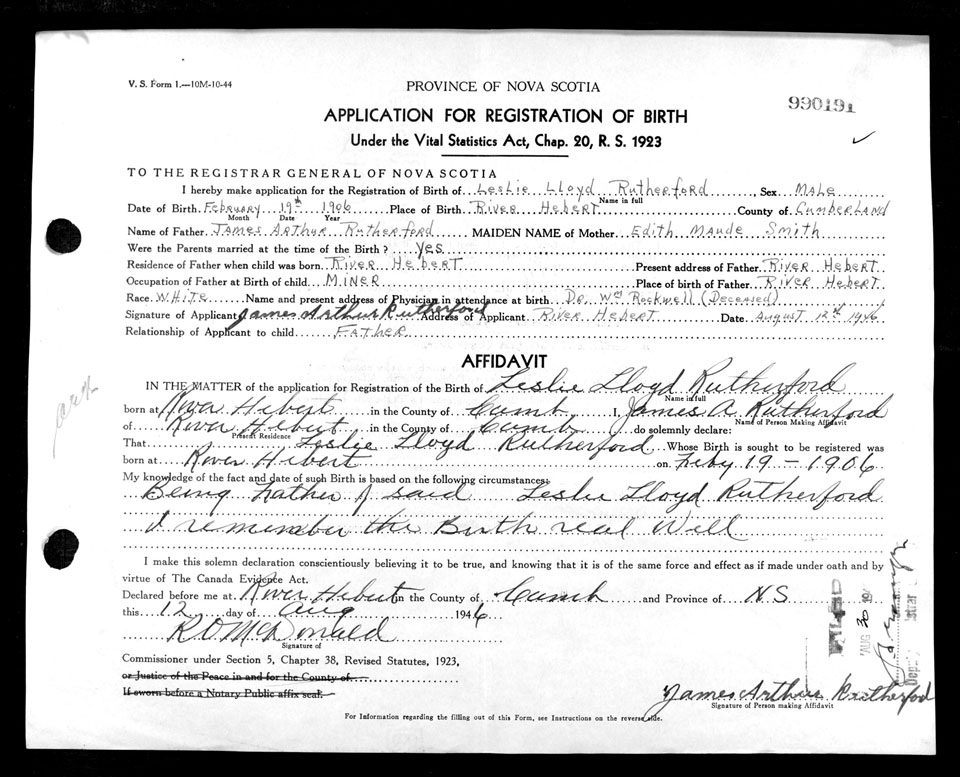 V. S. Form 1.—10M-10-44
PROVINCE OF NOVA SCOTIA
990191
APPLICATION FOR REGISTRATION OF BIRTH
Under the Vital Statistics Act, Chap. 20, R. S. 1923
TO THE REGISTRAR GENERAL OF NOVA SCOTIA
I hereby make application for the Registration of Birth of Leslie Lloyd Rutherford Sex Male
Name in full
Date of Birth February 19th 1906 Place of Birth River Hebert County of Cumberland
Month Date Year
Name of Father James Arthur Rutherford MAIDEN NAME of Mother Edith Maude Smith
Were the Parents married at the time of the Birth? Yes
Residence of Father when child was born River Hebert Present address of Father River Hebert
Occupation of Father at Birth of child Miner Place of birth of Father River Hebert
Race White Name and present address of Physician in attendance at birth Dr. Wm Rockwell (Deceased)
Signature of Applicant James Arthur Rutherford Address of Applicant River Hebert Date August 12th 1946
Relationship of Applicant to child Father
AFFIDAVIT
IN THE MATTER of the application for Registration of the Birth of Leslie Lloyd Rutherford
Name in full
born at River Hebert in the County of Cumb I, James A. Rutherford
Name of Person Making Affidavit
of River Hebert in the County of Cumb do solemnly declare:
Present Residence
That Leslie Lloyd Rutherford Whose Birth is sought to be registered was
born at River Hebert on Feby 19 - 1906
My knowledge of the fact and date of such Birth is based on the following circumstances:
Being Father of said Leslie Lloyd Rutherford
I remember the Birth real Well
I make this solemn declaration conscientiously believing it to be true, and knowing that it is of the same force and effect as if made under oath and by
virtue of The Canada Evidence Act.
Declared before me at River Hebert in the County of Cumb and Province of N.S
this 12 day of Aug 1946
R O McDonald
Signature of
Commissioner under Section 5, Chapter 38, Revised Statutes, 1923,
or Justice of the Peace in and for the County of
If sworn before a Notary Public affix seal.
James Arthur Rutherford
Signature of Person making Affidavit
For Information regarding the filling out of this Form, see Instructions on the reverse side.
AUG 30